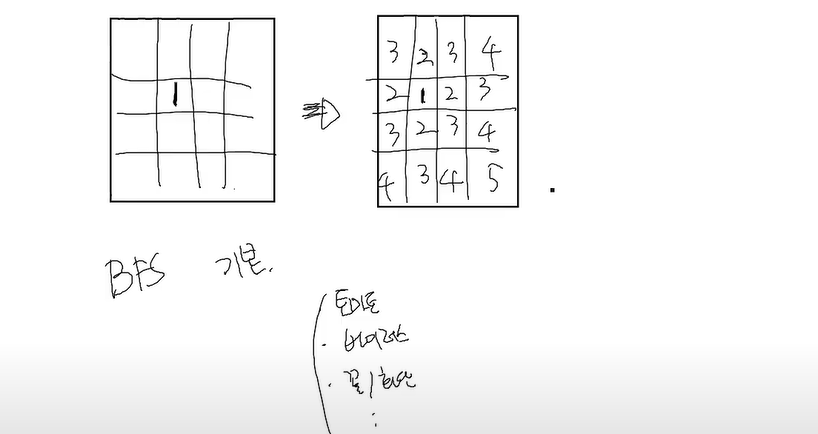 1
3 2 3 4
2 1 2 3
3 2 3 4
4 3 4 5
BFS 기본.
토마토
· 바이러스